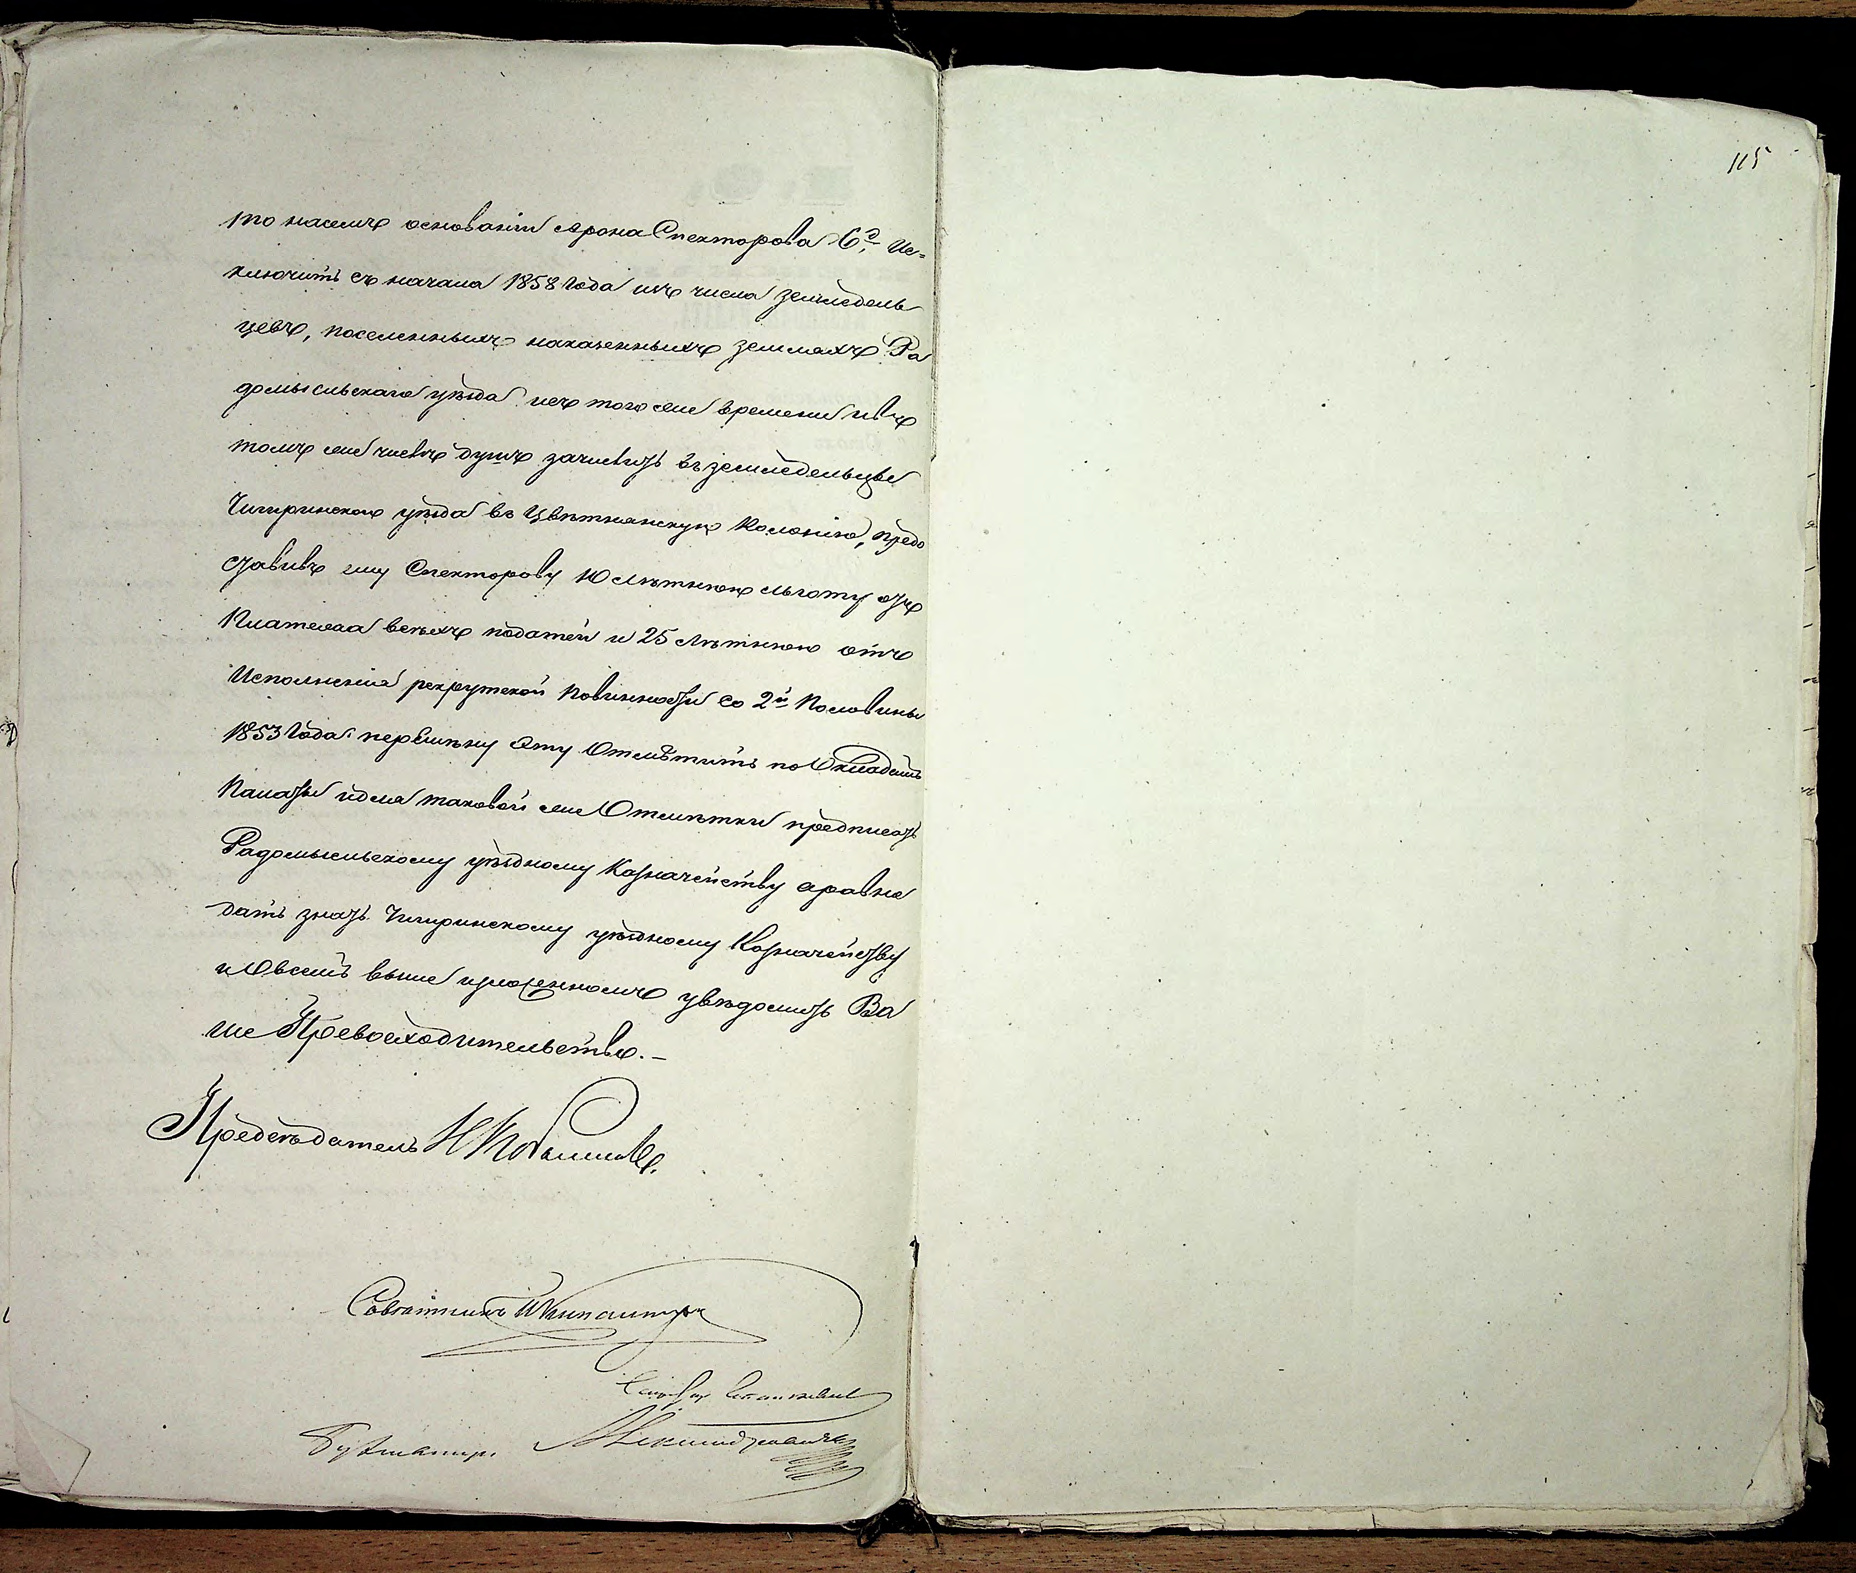 115
по насемъ основаніи Арона Спекторова 6 д. Ис=
ключить съ начала 1858 года изъ числа земледель
цевъ, поселенныхъ наказенныхъ земляхъ Ра
домысльскаго уѣзда исъ того же времени ивъ
томъ же числѣ душъ зачислить въ земледельцы
Чигиринскаго уѣзда въ Цвѣтнянскую Колонію, предо
ставивъ ему Спекторову 10 лѣтнюю льготу отъ
Платежа всѣхъ податей и 25 лѣтнюю отъ
Исполненія рекрутской повинности со 2й Половины
1853 года. перемѣну эту Отмѣтить по Окладамъ
Палаты идля таковой же Отмѣтки предписать
Радомысльскому уѣздному Казначейству аравно
дать знать Чигиринскому уѣздному Казначейству
и Овсемъ выше изложенномъ увѣдомить Ва
ше Превосходительство.—
Предсѣдатель
Совѣтникъ
Бухгалтеръ